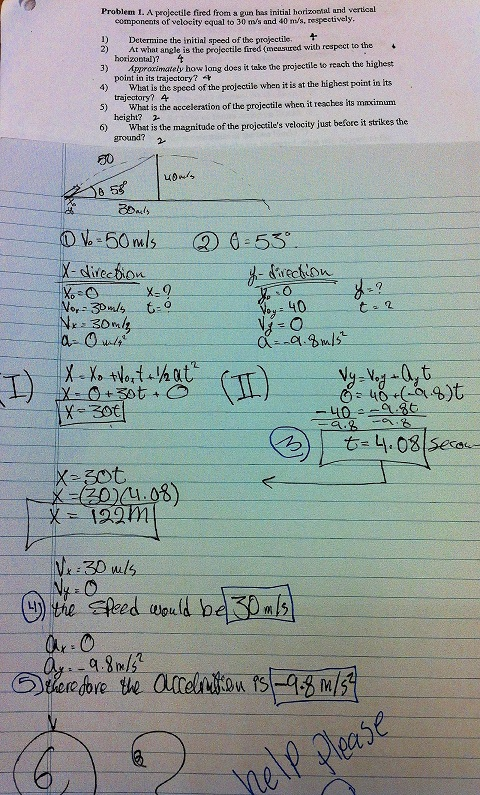 Problem 1. A projectile fired from a gun has initial horizontal and vertical
components of velocity equal to 30 m/s and 40 m/s, respectively.
1) Determine the initial speed of the projectile. 4
2) At what angle is the projectile fired (measured with respect to the
horizontal)? 4
3) Approximately how long does it take the projectile to reach the highest
point in its trajectory? 4
4) What is the speed of the projectile when it is at the highest point in its
trajectory? 4
5) What is the acceleration of the projectile when it reaches its maximum
height? 2
6) What is the magnitude of the projectile's velocity just before it strikes the
ground? 2
50
40m/s
θ 53°
30m/s
① V₀ = 50 m/s ② θ = 53°.
X-direction y-direction
X₀ = 0 X = ? y₀ = 0 y = ?
V₀ₓ = 30m/s t = ? V₀y = 40 t = ?
Vₓ = 30m/s Vy = 0
a = 0 m/s² a = -9.8m/s²
(I) X = X₀ + V₀ₓt + 1/2 at² (II) Vy = V₀y + ayt
X = 0 + 30t + 0 0 = 40 + (-9.8)t
X = 30t -40 = -9.8t
-9.8 -9.8
③ t = 4.08
X = 30t
X = (30)(4.08)
X = 122M
Vₓ = 30 m/s
Vy = 0
④ the speed would be 30 m/s
aₓ = 0
ay = -9.8m/s²
⑤ therefore the accelration is -9.8 m/s²
6 ?
help please